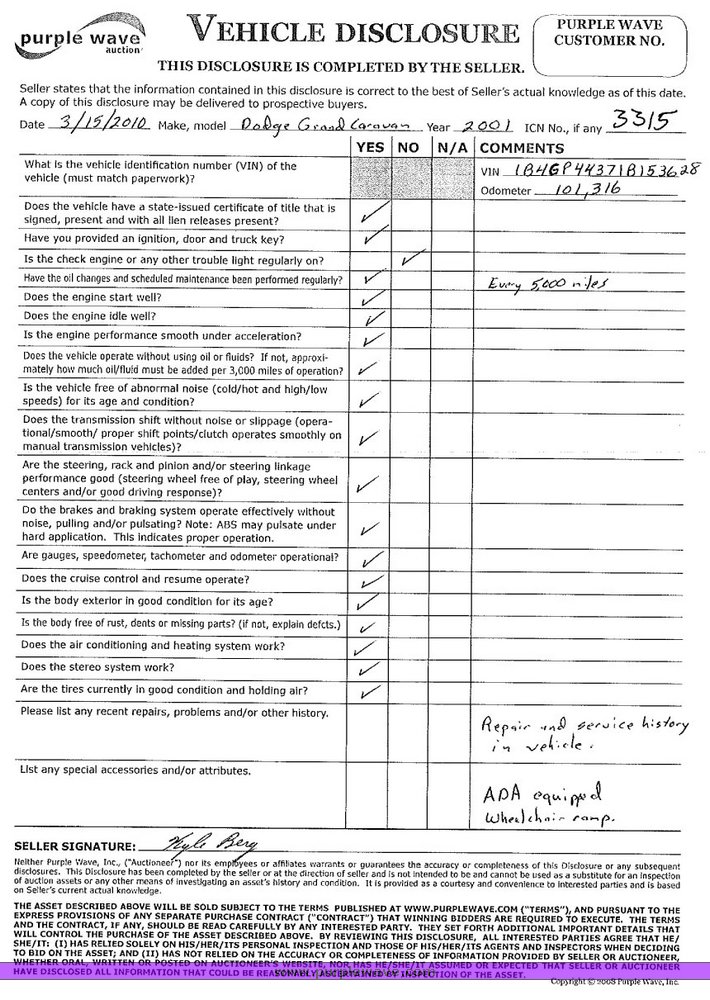 purple wave
auction
VEHICLE DISCLOSURE
PURPLE WAVE
CUSTOMER NO.
THIS DISCLOSURE IS COMPLETED BY THE SELLER.
Seller states that the information contained in this disclosure is correct to the best of Seller's actual knowledge as of this date.
A copy of this disclosure may be delivered to prospective buyers.
Date 3/15/2010 Make, model Dodge Grand Caravan Year 2001 ICN No., if any 3315
YES NO N/A COMMENTS
What is the vehicle identification number (VIN) of the
vehicle (must match paperwork)?
VIN 1B4GP44371B153628
Odometer 101,316
Does the vehicle have a state-issued certificate of title that is
signed, present and with all lien releases present?
Have you provided an ignition, door and truck key?
Is the check engine or any other trouble light regularly on?
Have the oil changes and scheduled maintenance been performed regularly? Every 5,000 miles
Does the engine start well?
Does the engine idle well?
Is the engine performance smooth under acceleration?
Does the vehicle operate without using oil or fluids? If not, approxi-
mately how much oil/fluid must be added per 3,000 miles of operation?
Is the vehicle free of abnormal noise (cold/hot and high/low
speeds) for its age and condition?
Does the transmission shift without noise or slippage (opera-
tional/smooth/ proper shift points/clutch operates smoothly on
manual transmission vehicles)?
Are the steering, rack and pinion and/or steering linkage
performance good (steering wheel free of play, steering wheel
centers and/or good driving response)?
Do the brakes and braking system operate effectively without
noise, pulling and/or pulsating? Note: ABS may pulsate under
hard application. This indicates proper operation.
Are gauges, speedometer, tachometer and odometer operational?
Does the cruise control and resume operate?
Is the body exterior in good condition for its age?
Is the body free of rust, dents or missing parts? (if not, explain defcts.)
Does the air conditioning and heating system work?
Does the stereo system work?
Are the tires currently in good condition and holding air?
Please list any recent repairs, problems and/or other history.
Repair and service history
in vehicle.
List any special accessories and/or attributes.
ADA equipped
Wheelchair ramp.
SELLER SIGNATURE: Kyle Berg
Neither Purple Wave, Inc., ("Auctioneer") nor its employees or affiliates warrants or guarantees the accuracy or completeness of this Disclosure or any subsequent
disclosures. This Disclosure has been completed by the seller or at the direction of seller and is not intended to be and cannot be used as a substitute for an inspection
of auction assets or any other means of investigating an asset's history and condition. It is provided as a courtesy and convenience to interested parties and is based
on Seller's current actual knowledge.
THE ASSET DESCRIBED ABOVE WILL BE SOLD SUBJECT TO THE TERMS PUBLISHED AT WWW.PURPLEWAVE.COM ("TERMS"), AND PURSUANT TO THE
EXPRESS PROVISIONS OF ANY SEPARATE PURCHASE CONTRACT ("CONTRACT") THAT WINNING BIDDERS ARE REQUIRED TO EXECUTE. THE TERMS
AND THE CONTRACT, IF ANY, SHOULD BE READ CAREFULLY BY ANY INTERESTED PARTY. THEY SET FORTH ADDITIONAL IMPORTANT DETAILS THAT
WILL CONTROL THE PURCHASE OF THE ASSET DESCRIBED ABOVE. BY REVIEWING THIS DISCLOSURE, ALL INTERESTED PARTIES AGREE THAT HE/
SHE/IT: (I) HAS RELIED SOLELY ON HIS/HER/ITS PERSONAL INSPECTION AND THOSE OF HIS/HER/ITS AGENTS AND INSPECTORS WHEN DECIDING
TO BID ON THE ASSET; AND (II) HAS NOT RELIED ON THE ACCURACY OR COMPLETENESS OF INFORMATION PROVIDED BY SELLER OR AUCTIONEER,
WHETHER ORAL, WRITTEN OR POSTED ON AUCTIONEER'S WEBSITE, NOR HAS HE/SHE/IT ASSUMED OR EXPECTED THAT SELLER OR AUCTIONEER
HAVE DISCLOSED ALL INFORMATION THAT COULD BE REASONABLY ASCERTAINED BY INSPECTION OF THE ASSET.
Copyright © 2008 Purple Wave, Inc.